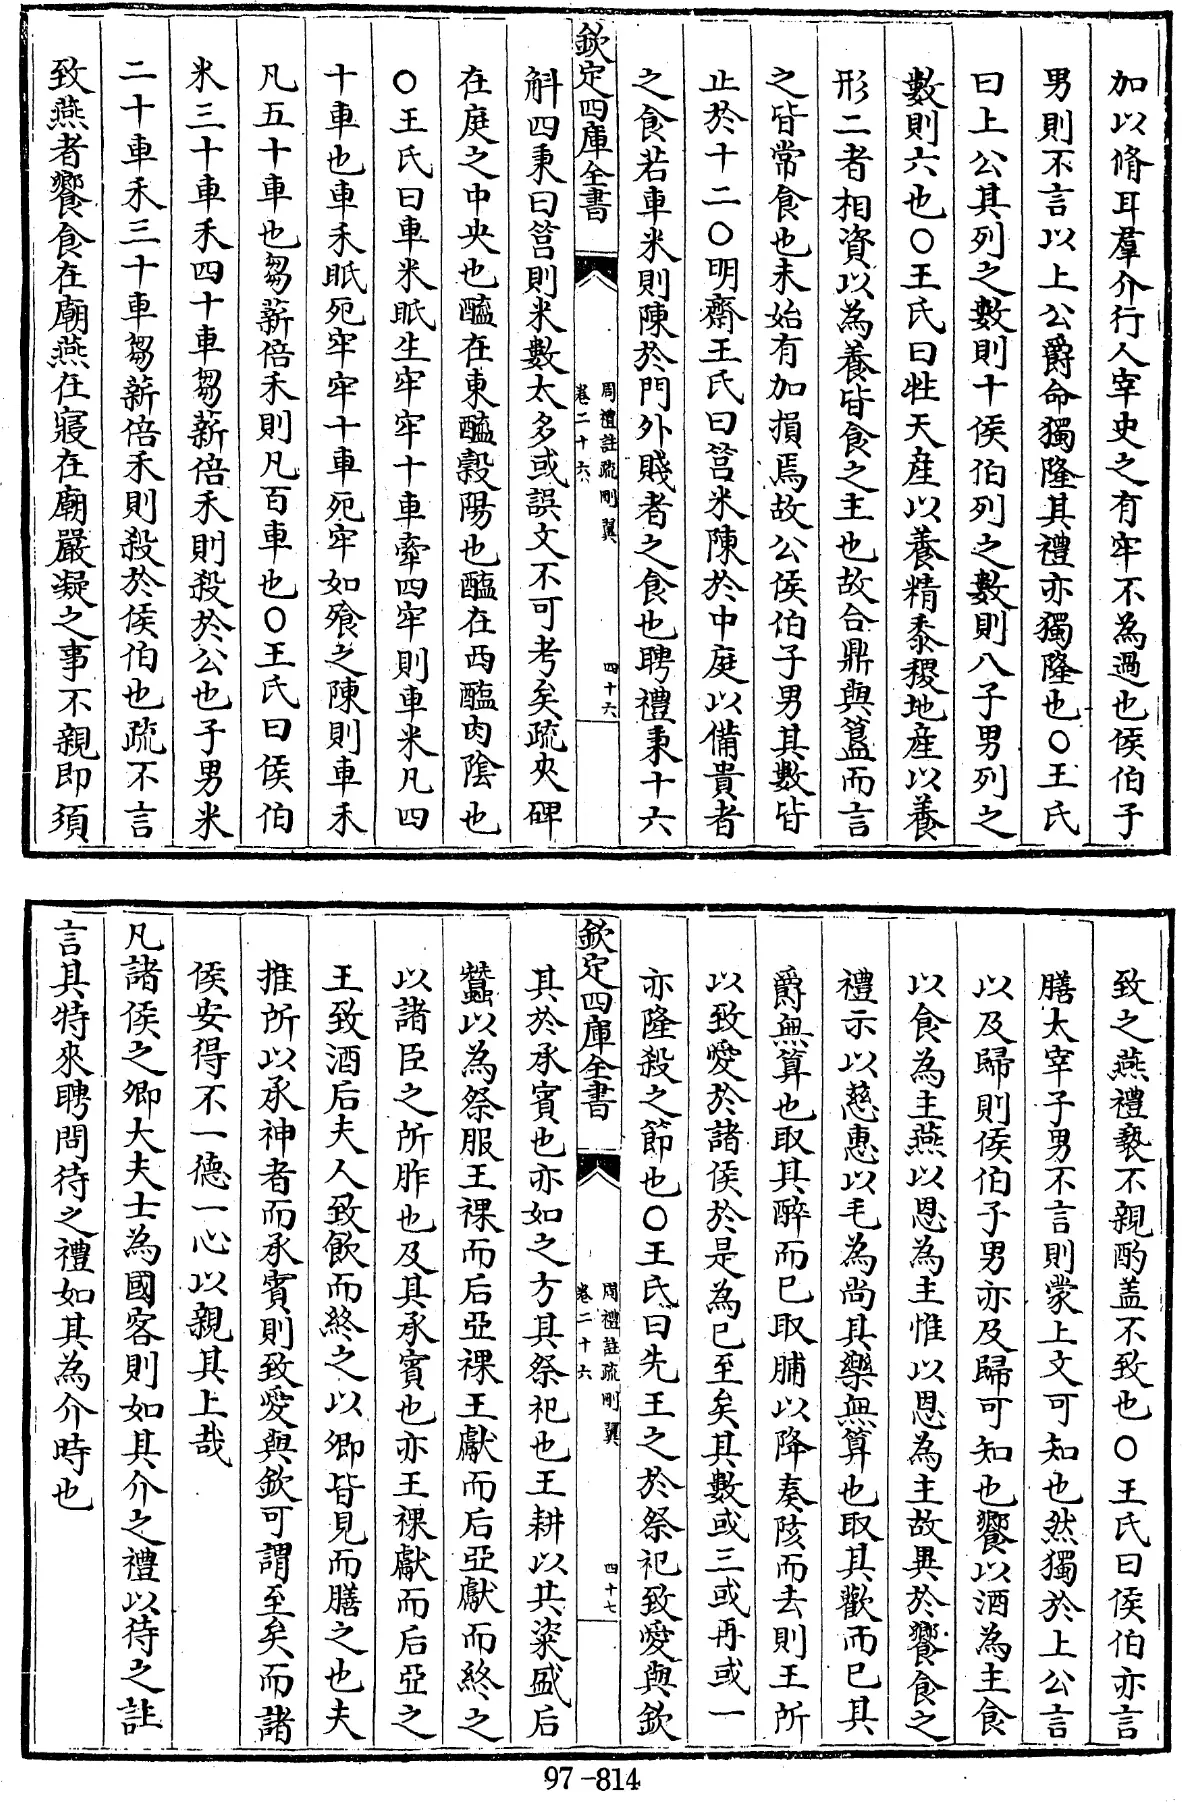 加以脩耳羣介行人宰史之有牢不為過也侯伯子
男則不言以上公爵命獨隆其禮亦獨隆也○王氏
曰上公其列之數則十侯伯列之數則八子男列之
數則六也○王氏曰牲天産以養精黍稷地産以養
形二者相資以為養皆食之主也故合鼎與簋而言
之皆常食也未始有加損焉故公侯伯子男其數皆
止於十二○明齋王氏曰筥米陳於中庭以備貴者
之食若車米則陳於門外賤者之食也聘禮秉十六
欽定四庫全書
周禮註疏刪翼
卷二十六
四十六
斛四秉曰筥則米數太多或誤文不可考矣疏夾碑
在庭之中央也醯在東醯糓陽也醢在西醢肉陰也
○王氏曰車米眡生牢牢十車牽四牢則車米凡四
十車也車禾眡死牢牢十車死牢如飱之陳則車禾
凡五十車也芻薪倍禾則凡百車也○王氏曰侯伯
米三十車禾四十車芻薪倍禾則殺於公也子男米
二十車禾三十車芻薪倍禾則殺於侯伯也疏不言
致燕者饗食在廟燕在寢在廟嚴凝之事不親即須
致之燕禮褻不親酌盖不致也○王氏曰侯伯亦言
膳太宰子男不言則蒙上文可知也然獨於上公言
以及歸則侯伯子男亦及歸可知也饗以酒為主食
以食為主燕以恩為主惟以恩為主故異於饗食之
禮示以慈惠以毛為尚其樂無算也取其歡而已其
爵無算也取其醉而已取脯以降奏陔而去則王所
以致愛於諸侯於是為已至矣其數或三或再或一
亦隆殺之節也○王氏曰先王之於祭祀致愛與欽
欽定四庫全書
周禮註疏刪翼
卷二十六
四十七
其於承賓也亦如之方其祭祀也王耕以共粢盛后
蠶以為祭服王祼而后亞祼王獻而后亞獻而終之
以諸臣之所胙也及其承賓也亦王祼獻而后亞之
王致酒后夫人致飲而終之以卿皆見而膳之也夫
推所以承神者而承賓則致愛與欽可謂至矣而諸
侯安得不一德一心以親其上哉
凡諸侯之卿大夫士為國客則如其介之禮以待之註
言其特來聘問待之禮如其為介時也
97-814